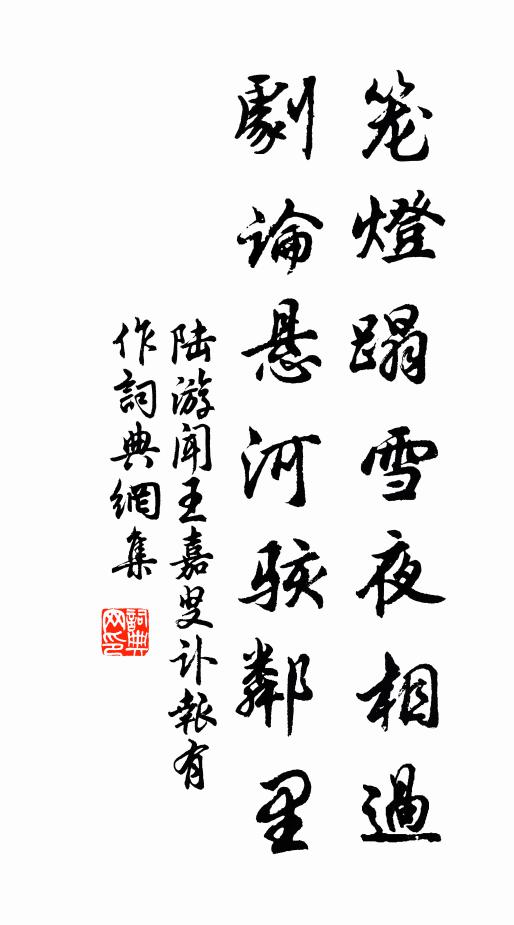 笼燈蹋雪夜相過
劇論悬河骇鄰里
陆游闻王嘉叟讣報有
作詞典網集
詞典網印